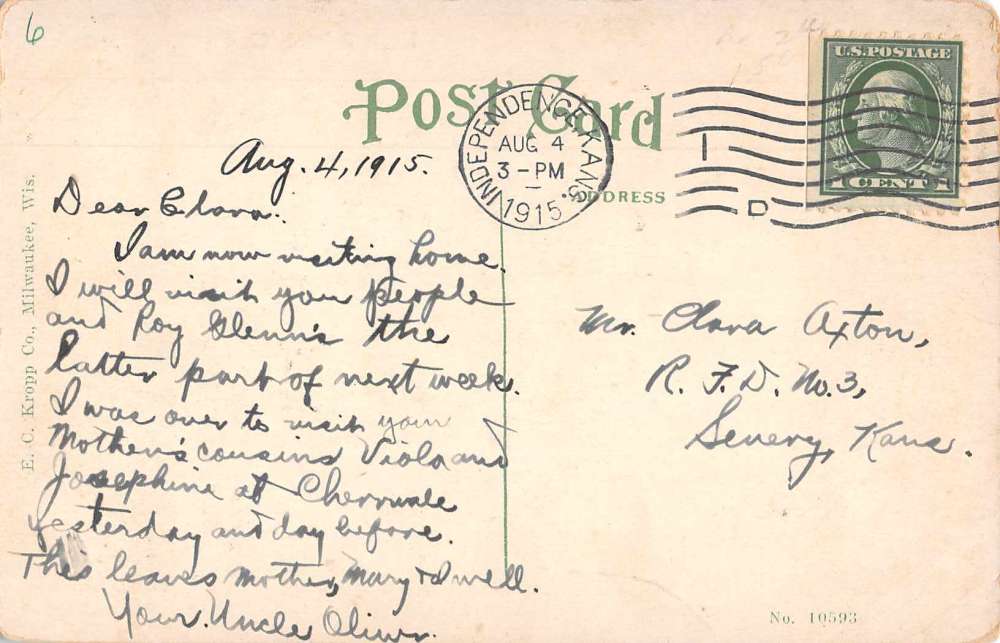 6
Post Card
U.S. POSTAGE
1 CENT 1
INDEPENDENCE, KANS.
AUG 4
3-PM
1915
I
D
ADDRESS
E. C. Kropp Co., Milwaukee, Wis.
Aug. 4, 1915.
Dear Clara:
I am now visiting home.
I will visit your people
and Roy Glenn's the
latter part of next week.
I was over to visit your
Mother's cousins Viola and
Josephine at Cherryvale
yesterday and day before.
This leaves mother, Mary & I well.
Your Uncle Oliver.
Mr. Clara Axton,
R. F. D. No. 3,
Severy, Kans.
No. 10593